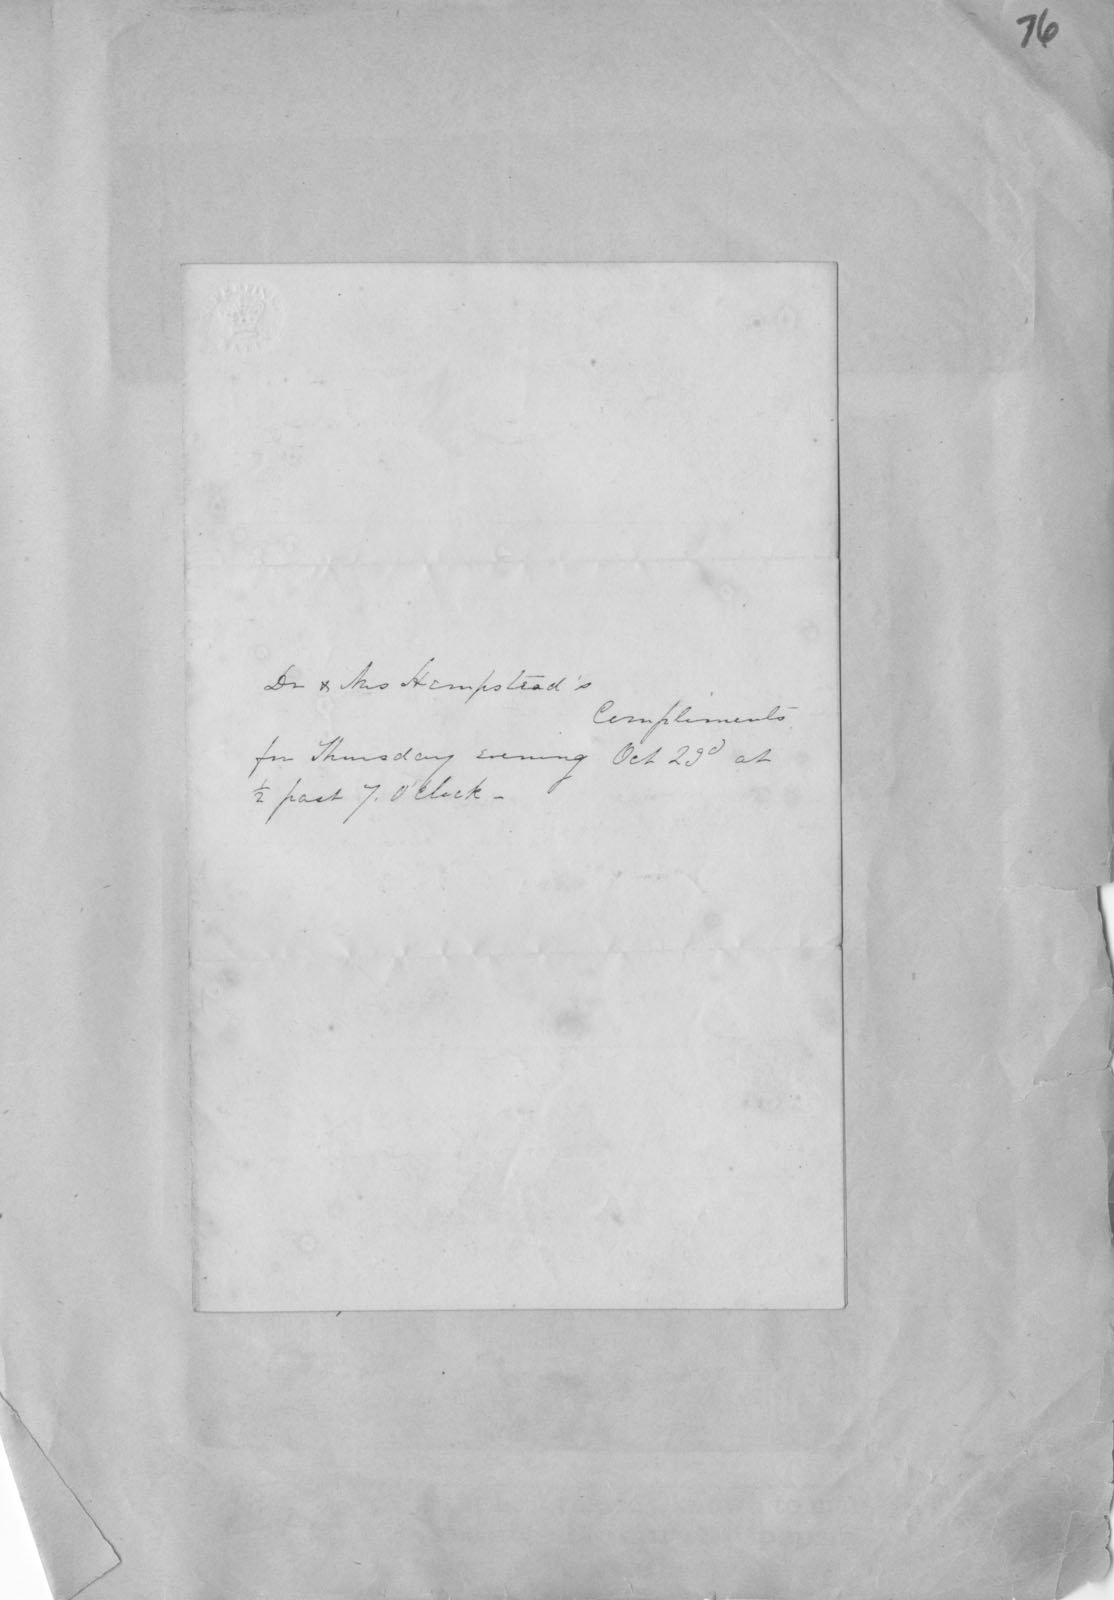 76
Dr & Mrs Hempstead's
Compliments
for Thursday evening Oct 23d at
½ past 7. O'Clock –